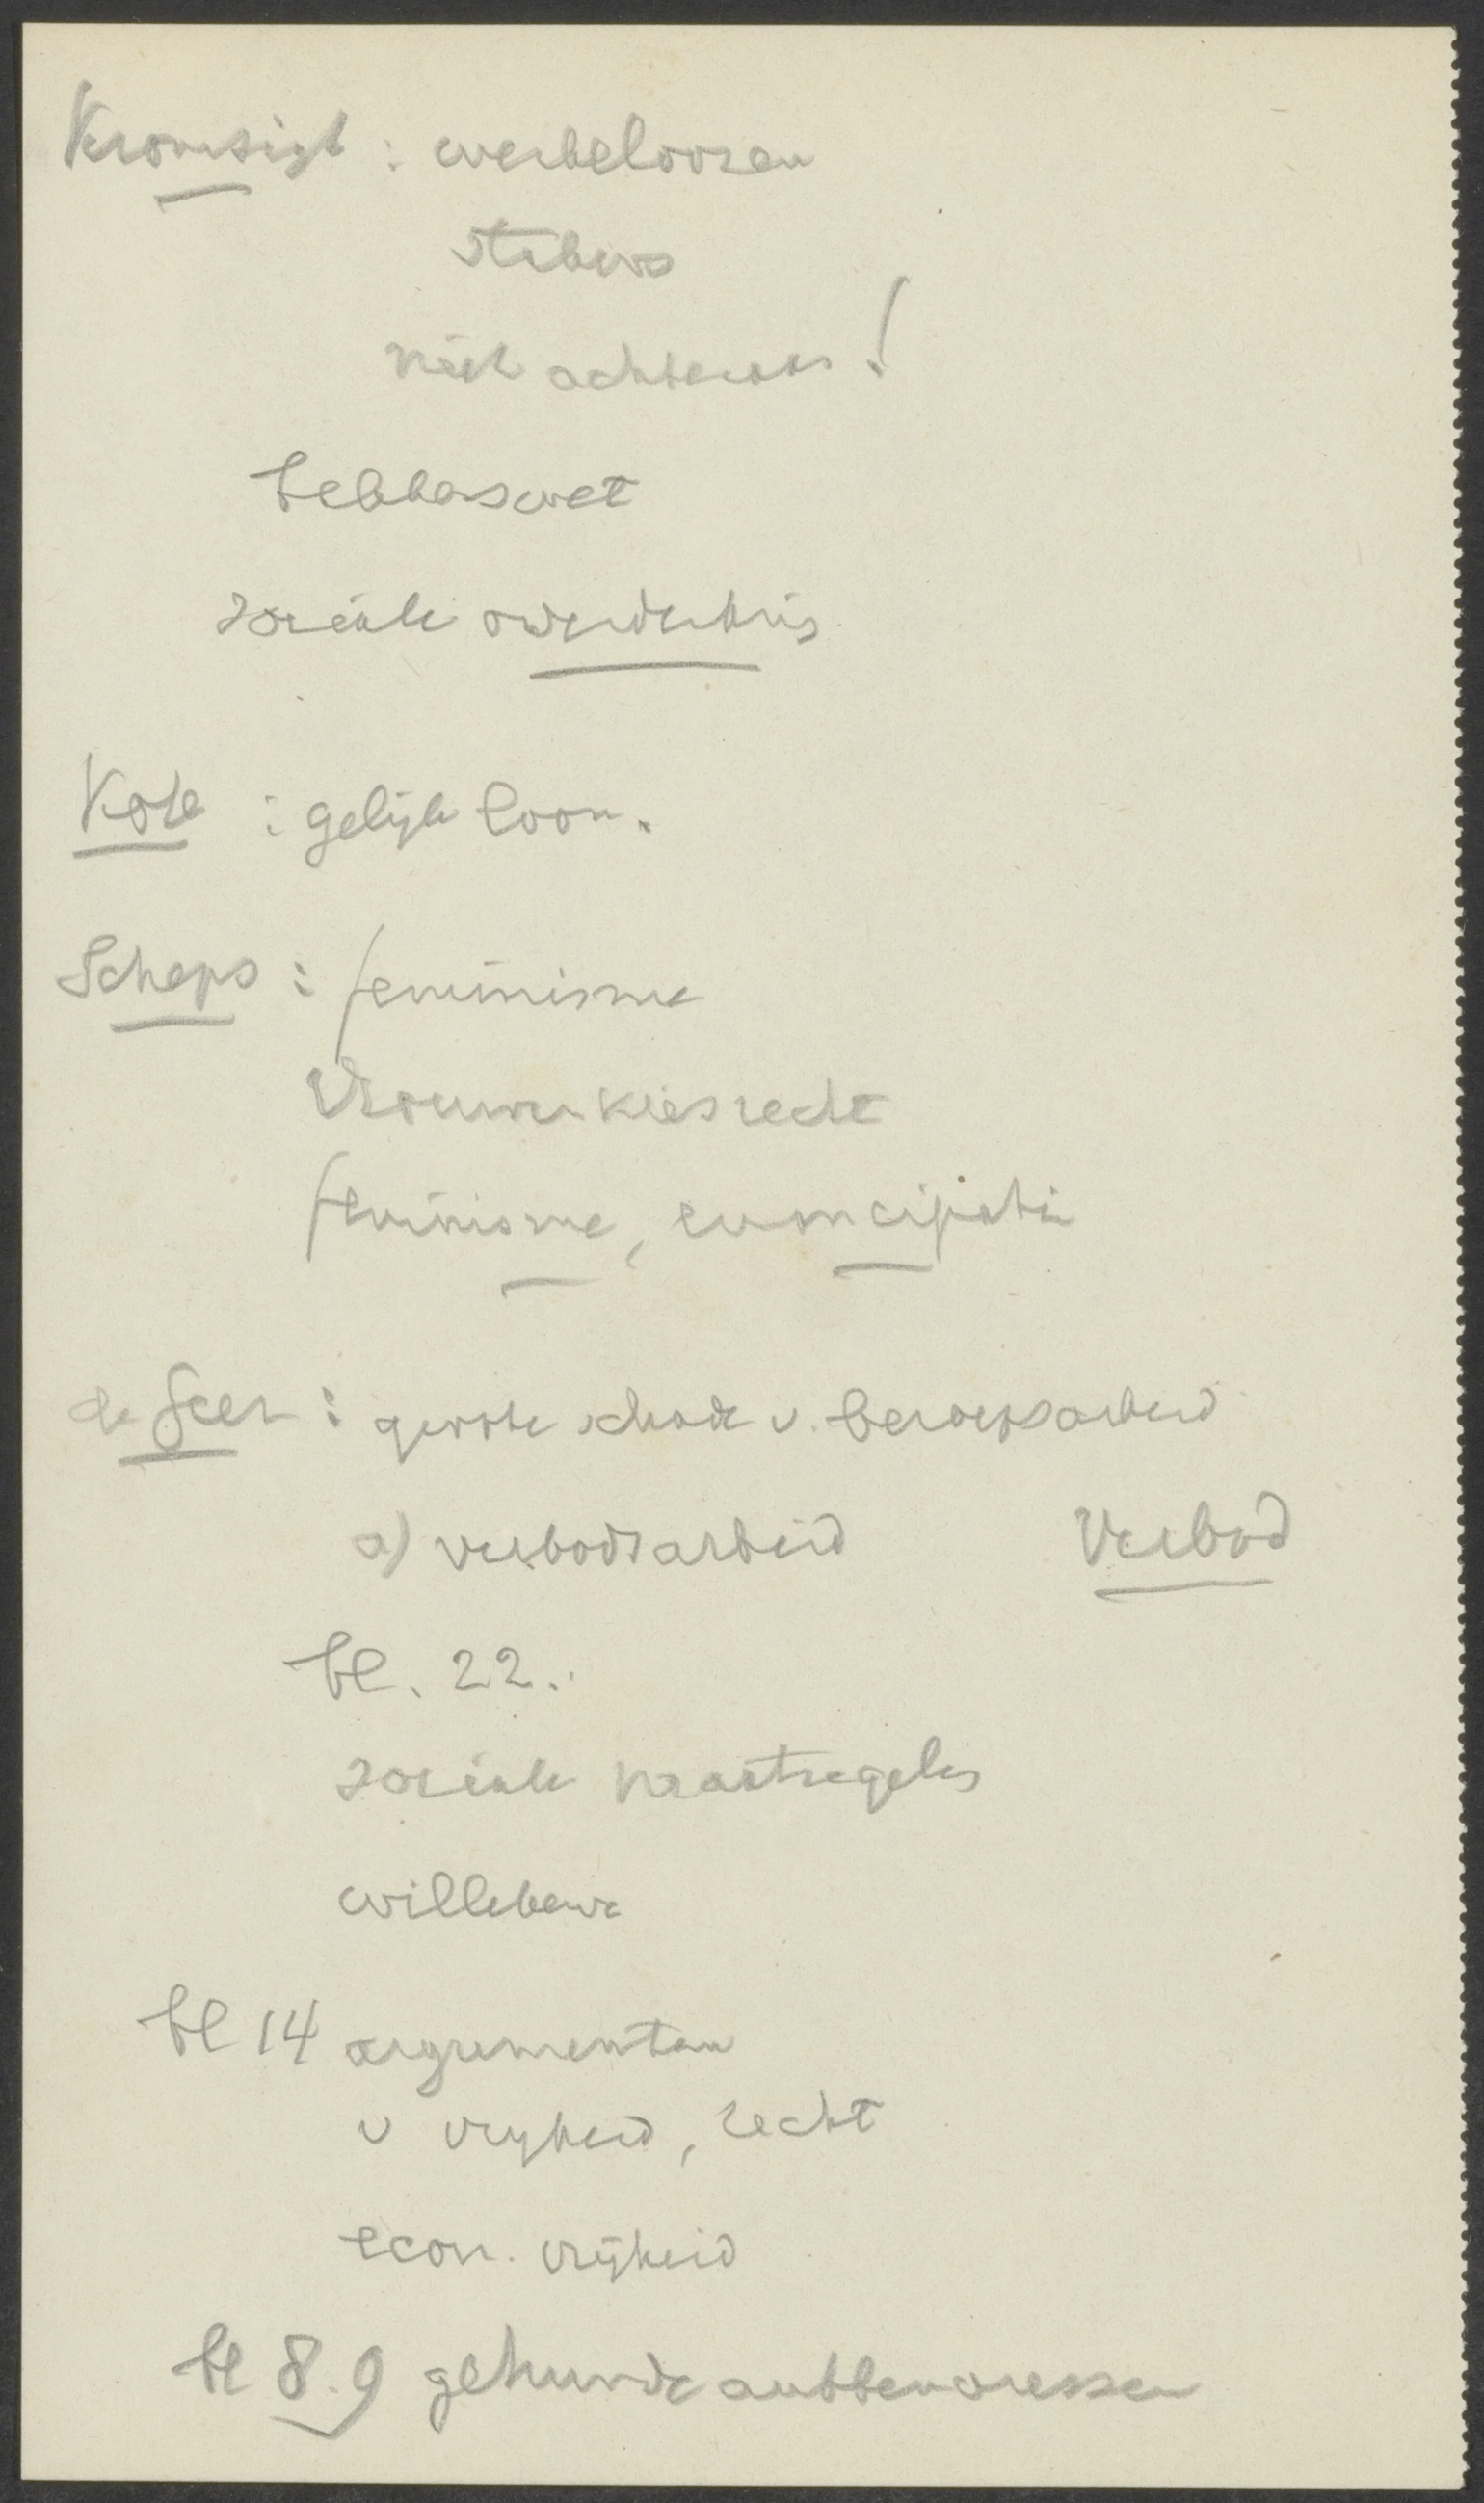 Kromsigt : werkeloozen
niet achteruit !
bakkerswet
sociale
Kose : gelijk loon.
Scheps : feminisme
Vrouwenkiesrecht
feminisme, emancipatie
de Geer : groote schade v. beroepsarbeid
a) verbodsarbeid Verbod
bl. 22.
sociale maatregelen
willekeur
bl 14 argumenten
v vrijheid, recht
econ. vrijheid
bl 8.9 gehuwde ambtenaressen